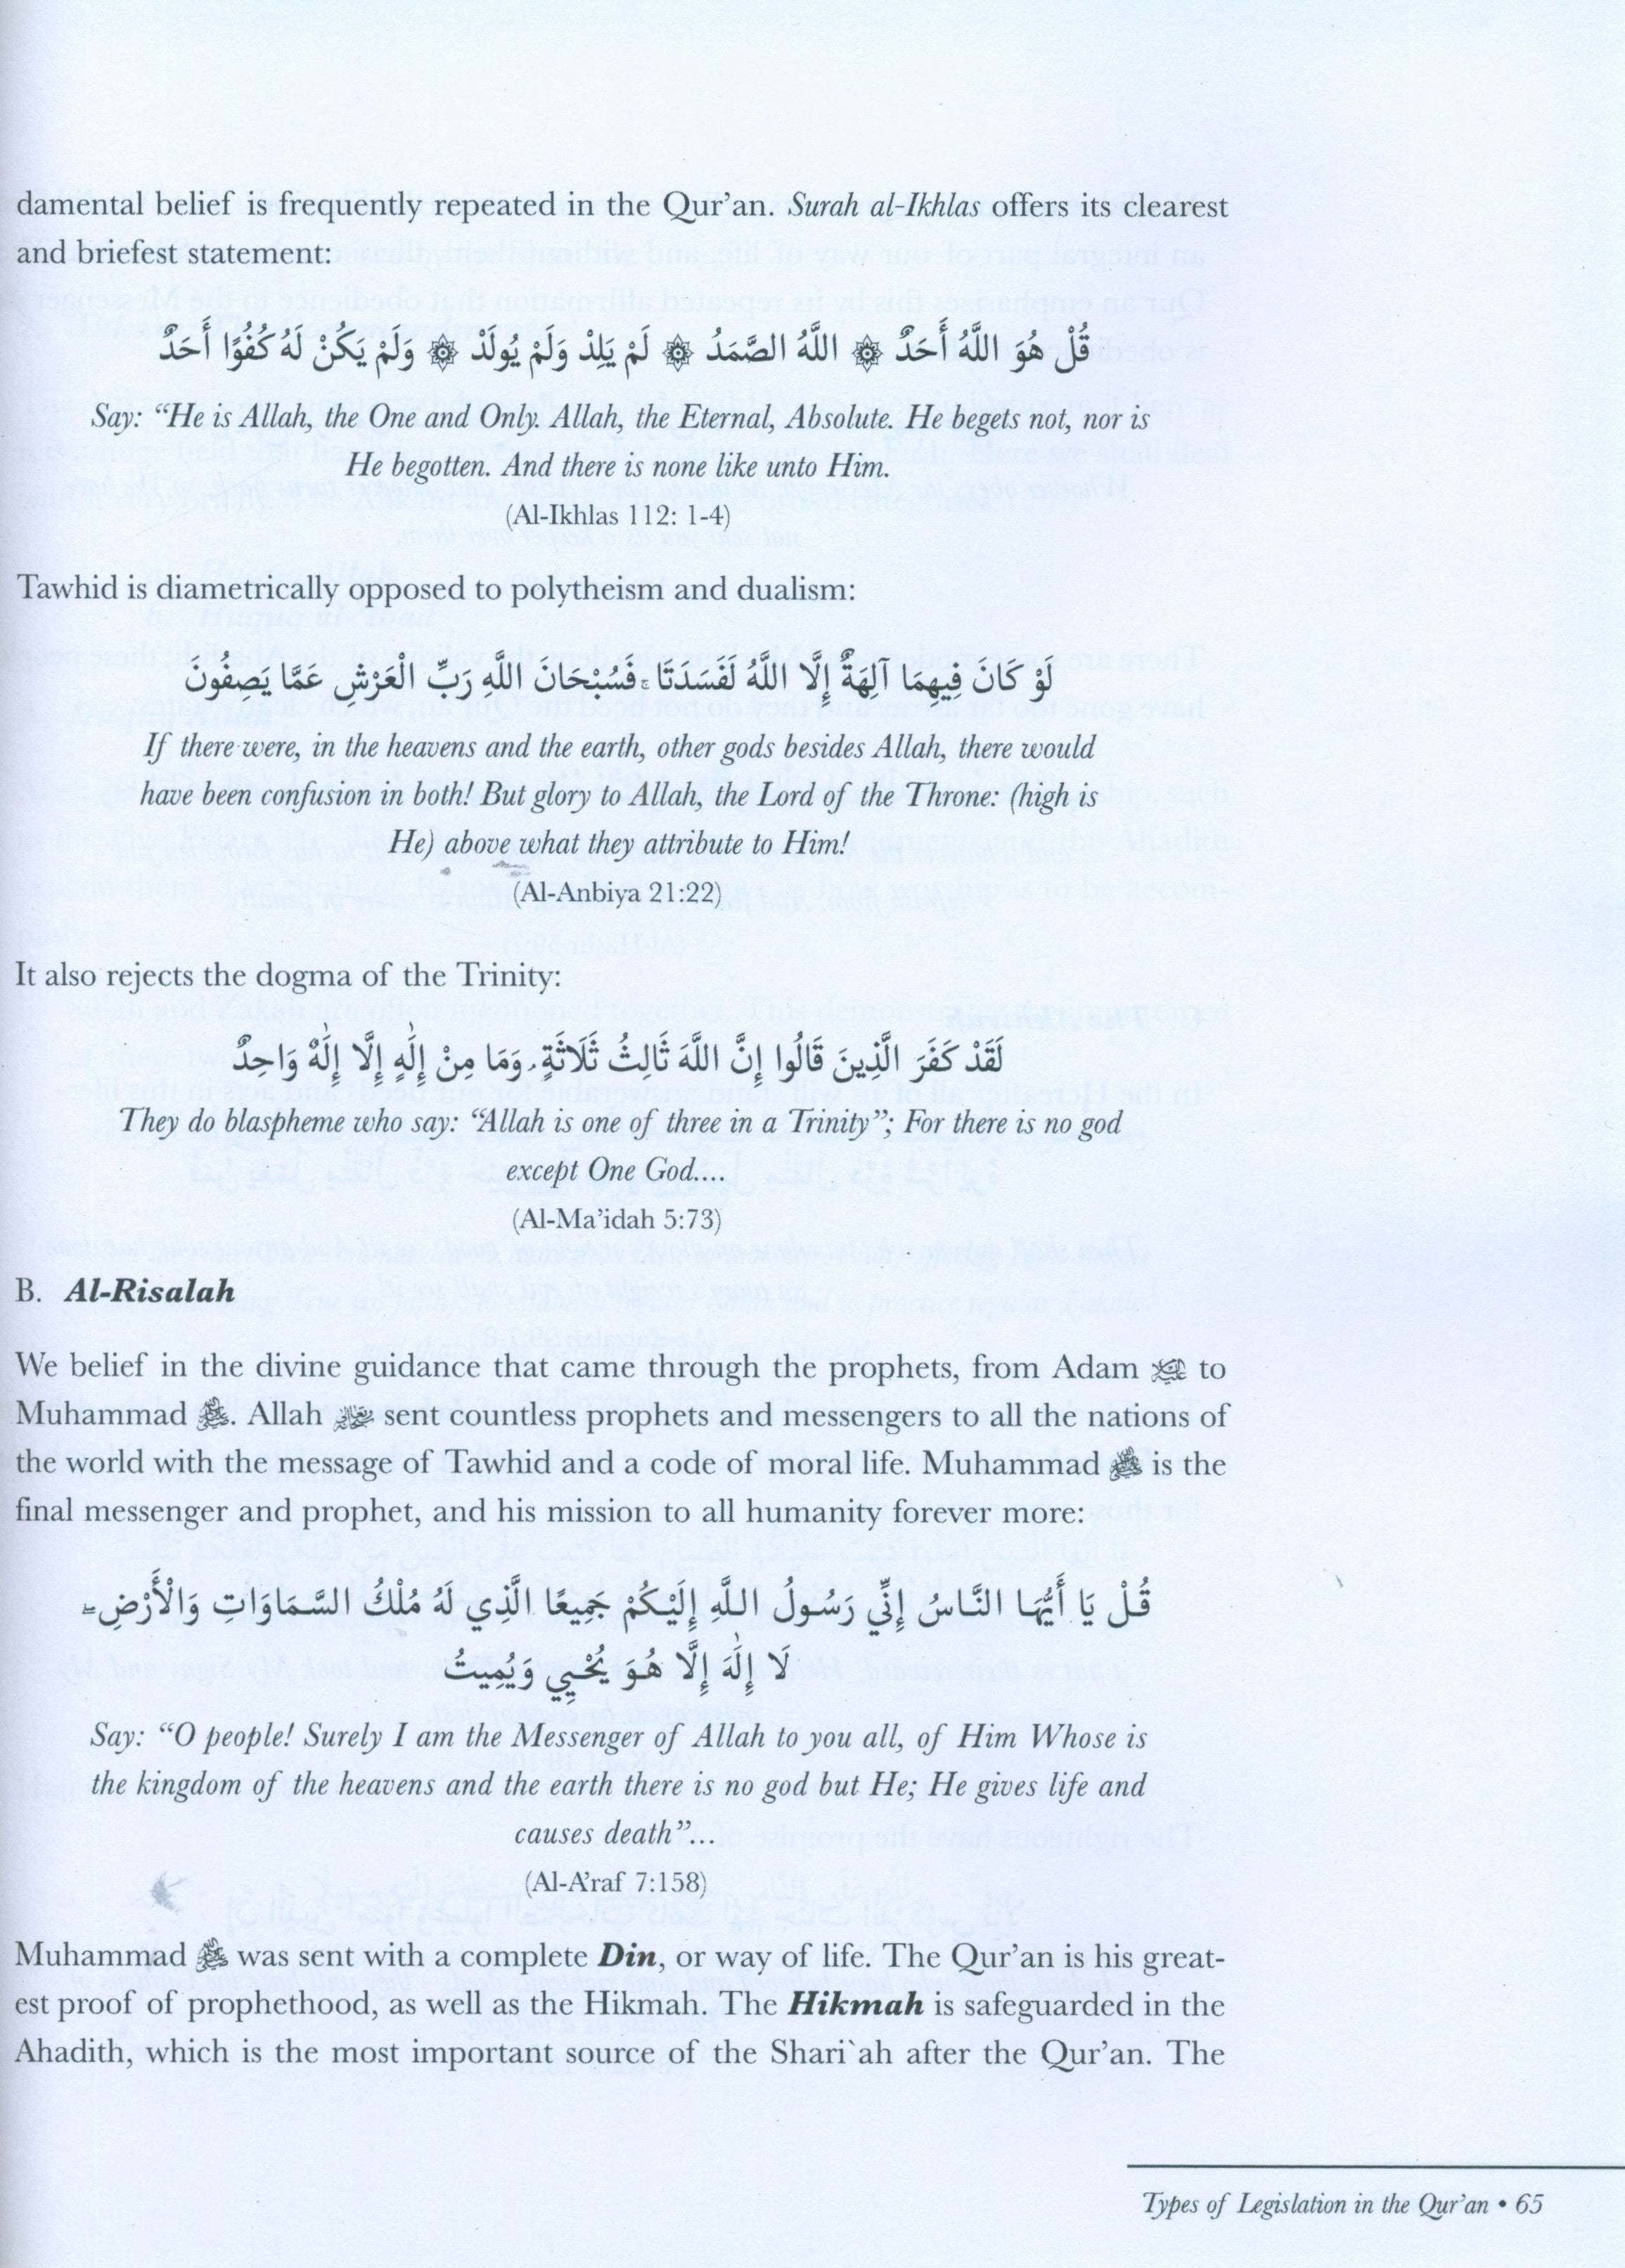 damental belief is frequently repeated in the Qur’an. Surah al-Ikhlas offers its clearest
and briefest statement:
قُلْ هُوَ اللَّهُ أَحَدٌ ۞ اللَّهُ الصَّمَدُ ۞ لَمْ يَلِدْ وَلَمْ يُولَدْ ۞ وَلَمْ يَكُنْ لَهُ كُفُوًا أَحَدٌ
Say: “He is Allah, the One and Only. Allah, the Eternal, Absolute. He begets not, nor is
He begotten. And there is none like unto Him.
(Al-Ikhlas 112: 1-4)
Tawhid is diametrically opposed to polytheism and dualism:
لَوْ كَانَ فِيهِمَا آلِهَةٌ إِلَّا اللَّهُ لَفَسَدَتَا ۚ فَسُبْحَانَ اللَّهِ رَبِّ الْعَرْشِ عَمَّا يَصِفُونَ
If there were, in the heavens and the earth, other gods besides Allah, there would
have been confusion in both! But glory to Allah, the Lord of the Throne: (high is
He) above what they attribute to Him!
(Al-Anbiya 21:22)
It also rejects the dogma of the Trinity:
لَقَدْ كَفَرَ الَّذِينَ قَالُوا إِنَّ اللَّهَ ثَالِثُ ثَلَاثَةٍ ۘ وَمَا مِنْ إِلَٰهٍ إِلَّا إِلَٰهٌ وَاحِدٌ
They do blaspheme who say: “Allah is one of three in a Trinity”; For there is no god
except One God....
(Al-Ma’idah 5:73)
B. Al-Risalah
We belief in the divine guidance that came through the prophets, from Adam to
Muhammad ﷺ. Allah sent countless prophets and messengers to all the nations of
the world with the message of Tawhid and a code of moral life. Muhammad ﷺ is the
final messenger and prophet, and his mission to all humanity forever more:
قُلْ يَا أَيُّهَا النَّاسُ إِنِّي رَسُولُ اللَّهِ إِلَيْكُمْ جَمِيعًا الَّذِي لَهُ مُلْكُ السَّمَاوَاتِ وَالْأَرْضِ ۖ
لَا إِلَٰهَ إِلَّا هُوَ يُحْيِي وَيُمِيتُ
Say: “O people! Surely I am the Messenger of Allah to you all, of Him Whose is
the kingdom of the heavens and the earth there is no god but He; He gives life and
causes death”...
(Al-A’raf 7:158)
Muhammad ﷺ was sent with a complete Din, or way of life. The Qur’an is his great-
est proof of prophethood, as well as the Hikmah. The Hikmah is safeguarded in the
Ahadith, which is the most important source of the Shari`ah after the Qur’an. The
Types of Legislation in the Qur’an • 65